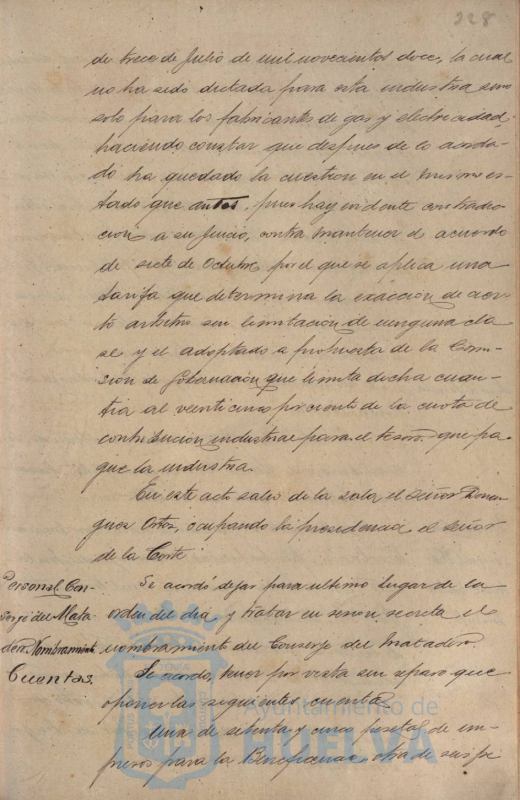 228
de trece de Julio de mil novecientos doce, la cual
no ha sido dictada para esta industria sino
solo para los fabricantes de gas y electricidad,
haciendo constar que despues de lo acorda-
do ha quedado la cuestion en el mismo es-
tado que antes, pues hay evidente contradic-
cion a su juicio, contra mantener el acuerdo
de siete de Octubre, por el que se aplica una
tarifa que determina la exacción de cier-
to arbitrio sin limitación de ninguna cla
se y el adoptado a propuesta de la Comi-
sion de Gobernación que limita dicha cuan-
tia al veinticinco por ciento de la cuota de
contribución industrial para el tesoro que pa-
gue la industria.
En este acto sale de la sala el Señor Domin
guez Ortiz, ocupando la presidencia el Señor
de la Corte
Personal. Con-
serje del Mata
dero. Nombramiento
Se acordó dejar para ultimo lugar de la
orden del dia y tratar en sesion secreta el
nombramiento del Conserje del Matadero.
Cuentas.
Se acordo, tener por vista sin reparo que
oponer las siguientes cuentas
Una de setenta y cinco pesetas de im-
presos para la Beneficencia, otra de seis pe
Ayuntamiento de
HUELVA